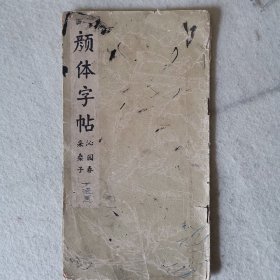 颜体字帖
沁园春
采桑子